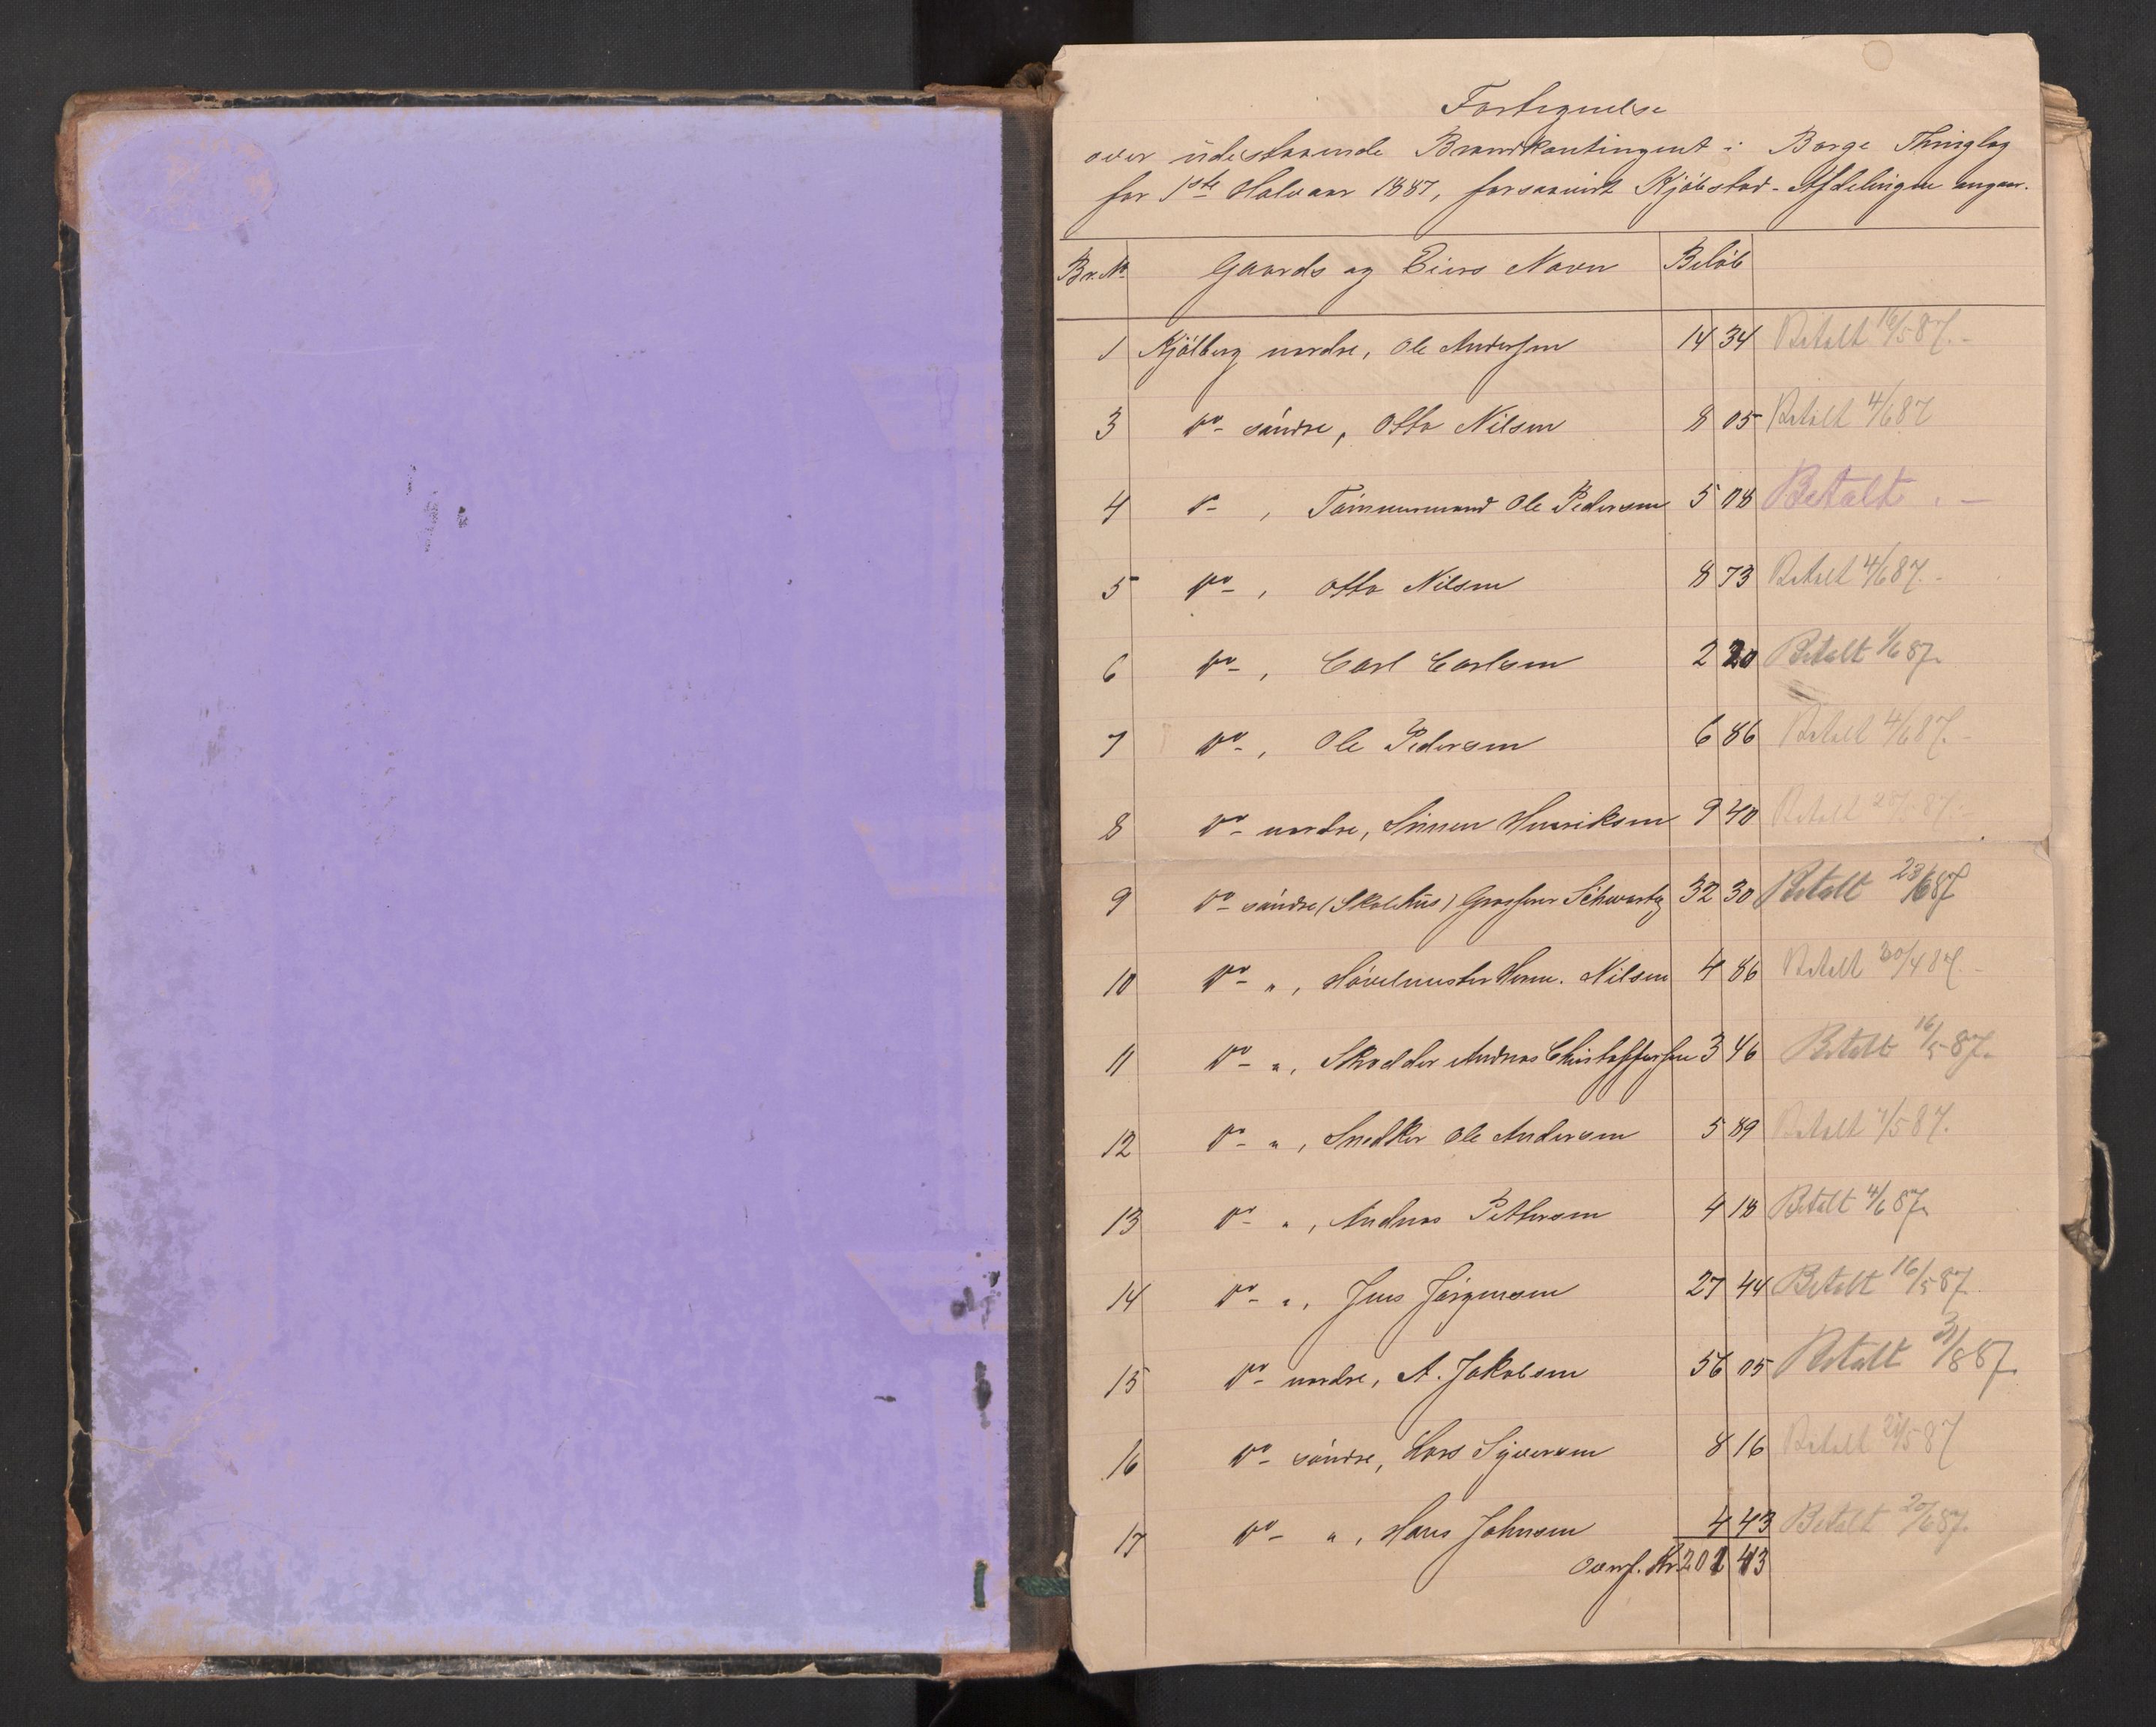 Fortegnelse
over udestaaende Brandkontingent i Borge Thinglag
for 1ste Halvaar 1887, forsaavidt Kjöbstad-Afdelingen angaar.
Br.No Gaards og Eiers Navn Belöb
1 Kjölberg nordre, Ole Andersen 14 34 Betalt 16/5 87.-
3 Do- söndre, Otto Nilsen 8 05 Betalt 4/6 87
4 D- , Tömmermand Ole Pedersen 5 08 Betalt . -
5 Do- , Otto Nilsen 8 73 Betalt 4/6 87.-
6 Do- , Carl Carlsen 2 20 Betalt 1/6 87.
7 Do- , Ole Pedersen 6 86 Betalt 4/6 87.-
8 Do- nordre, Simen Henriksen 9 40 Betalt 87.
9 Do- söndre (Skolehus) Grosserer Schwartz 32 30 Betalt 23/6 87
10 Do- " , Hövelmester Herm. Nilsen 4 86 Betalt 30/4 87.-
11 Do- " , Skrædder Andreas Christoffersen 3 46 Betalt 16/5 87.
12 Do- " , Snedker Ole Andersen 5 89 Betalt 87.
13 Do- " , Andreas Pettersen 4 18 Betalt 4/6 87.
14 Do- " , Jens Jörgensen 27 44 Betalt 16/5 87.
15 Do- nordre, A. Jakobsen 56 05 Betalt 31/8 87.
16 Do- söndre, Lars Syversen 8 16 Betalt 21/5 87
17 Do- " , Hans Johnsen 4 43 Betalt 20/6 87.
Overf. Kr. 201 43